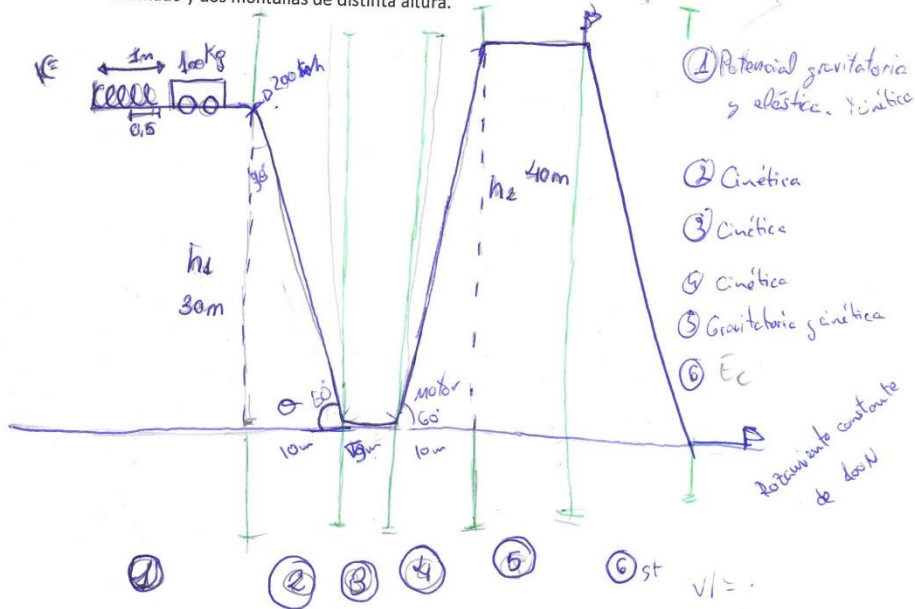 y dos montañas de distinta altura.
K=
1m
100kg
0,5
200km/h
h1
30m
30°
θ 60°
Motor
60°
10m
10m
h2 40m
① Potencial gravitatoria
y elástica. Y cinética
② Cinética
③ Cinética
④ Cinética
⑤ Gravitatoria y cinética
⑥ Ec
Rozamiento constante
de 100N
①
②
③
④
⑤
⑥